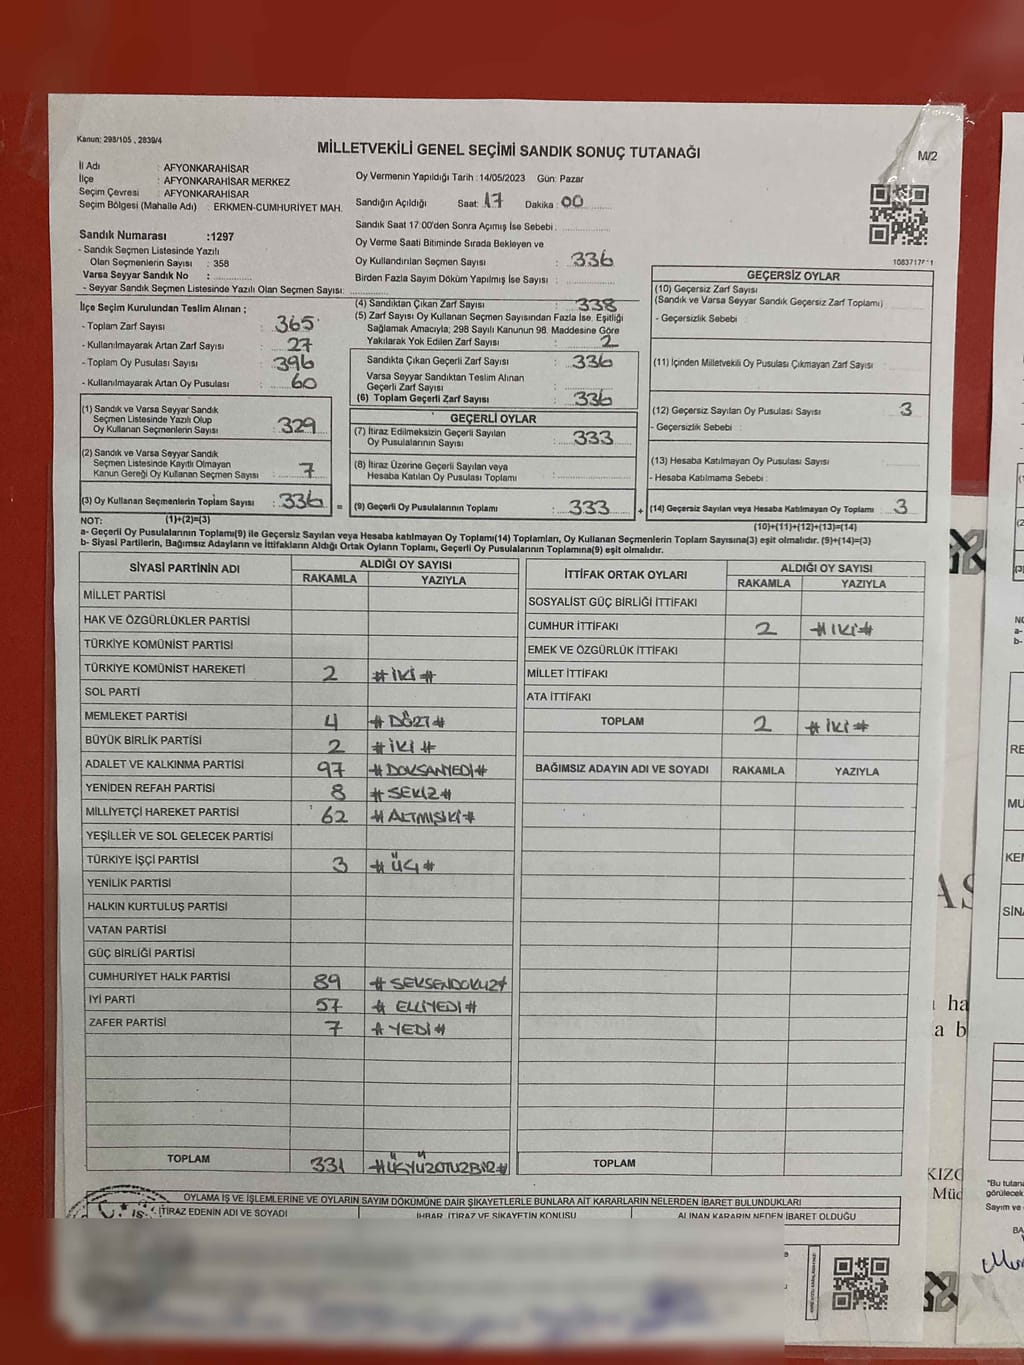 Kanun: 298/105 , 2839/4
MİLLETVEKİLİ GENEL SEÇİMİ SANDIK SONUÇ TUTANAĞI
M/2
İl Adı : AFYONKARAHİSAR
İlçe : AFYONKARAHİSAR MERKEZ
Seçim Çevresi : AFYONKARAHİSAR
Seçim Bölgesi (Mahalle Adı) : ERKMEN-CUMHURİYET MAH.
Sandık Numarası :1297
- Sandık Seçmen Listesinde Yazılı
Olan Seçmenlerin Sayısı : 358
Varsa Seyyar Sandık No :
- Seyyar Sandık Seçmen Listesinde Yazılı Olan Seçmen Sayısı:
Oy Vermenin Yapıldığı Tarih : 14/05/2023 Gün: Pazar
Sandığın Açıldığı Saat: 17 Dakika : 00
Sandık Saat 17:00'den Sonra Açımış İse Sebebi :
Oy Verme Saati Bitiminde Sırada Bekleyen ve
Oy Kullandırılan Seçmen Sayısı : 336
Birden Fazla Sayım Döküm Yapılmış İse Sayısı :
İlçe Seçim Kurulundan Teslim Alınan ;
- Toplam Zarf Sayısı : 365
- Kullanılmayarak Artan Zarf Sayısı : 27
- Toplam Oy Pusulası Sayısı : 396
- Kullanılmayarak Artan Oy Pusulası : 60
(1) Sandık ve Varsa Seyyar Sandık
Seçmen Listesinde Yazılı Olup
Oy Kullanan Seçmenlerin Sayısı : 329
(2) Sandık ve Varsa Seyyar Sandık
Seçmen Listesinde Kayıtlı Olmayan
Kanun Gereği Oy Kullanan Seçmen Sayısı : 7
(3) Oy Kullanan Seçmenlerin Toplam Sayısı : 336 =
(1)+(2)=(3)
(4) Sandıktan Çıkan Zarf Sayısı : 338
(5) Zarf Sayısı Oy Kullanan Seçmen Sayısından Fazla İse, Eşitliği
Sağlamak Amacıyla; 298 Sayılı Kanunun 98. Maddesine Göre
Yakılarak Yok Edilen Zarf Sayısı : 2
Sandıkta Çıkan Geçerli Zarf Sayısı : 336
Varsa Seyyar Sandıktan Teslim Alınan
Geçerli Zarf Sayısı :
(6) Toplam Geçerli Zarf Sayısı : 336
GEÇERLİ OYLAR
(7) İtiraz Edilmeksizin Geçerli Sayılan
Oy Pusulalarının Sayısı : 333
(8) İtiraz Üzerine Geçerli Sayılan veya
Hesaba Katılan Oy Pusulası Toplamı :
(9) Geçerli Oy Pusulalarının Toplamı : 333 +
GEÇERSİZ OYLAR
(10) Geçersiz Zarf Sayısı
(Sandık ve Varsa Seyyar Sandık Geçersiz Zarf Toplamı)
- Geçersizlik Sebebi :
(11) İçinden Milletvekili Oy Pusulası Çıkmayan Zarf Sayısı
(12) Geçersiz Sayılan Oy Pusulası Sayısı : 3
- Geçersizlik Sebebi :
(13) Hesaba Katılmayan Oy Pusulası Sayısı
- Hesaba Katılmama Sebebi :
(14) Geçersiz Sayılan veya Hesaba Katılmayan Oy Toplamı : 3
(10)+(11)+(12)+(13)=(14)
NOT:
a- Geçerli Oy Pusulalarının Toplamı(9) ile Geçersiz Sayılan veya Hesaba katılmayan Oy Toplamı(14) Toplamları, Oy Kullanan Seçmenlerin Toplam Sayısına(3) eşit olmalıdır. (9)+(14)=(3)
b- Siyasi Partilerin, Bağımsız Adayların ve İttifakların Aldığı Ortak Oyların Toplamı, Geçerli Oy Pusulalarının Toplamına(9) eşit olmalıdır.
SİYASİ PARTİNİN ADI ALDIĞI OY SAYISI
RAKAMLA YAZIYLA
MİLLET PARTİSİ
HAK VE ÖZGÜRLÜKLER PARTİSİ
TÜRKİYE KOMÜNİST PARTİSİ
TÜRKİYE KOMÜNİST HAREKETİ 2 #İKİ#
SOL PARTİ
MEMLEKET PARTİSİ 4 #DÖRT#
BÜYÜK BİRLİK PARTİSİ 2 #İKİ#
ADALET VE KALKINMA PARTİSİ 97 #DOKSANYEDİ#
YENİDEN REFAH PARTİSİ 8 #SEKİZ#
MİLLİYETÇİ HAREKET PARTİSİ 62 #ALTMIŞİKİ#
YEŞİLLER VE SOL GELECEK PARTİSİ
TÜRKİYE İŞÇİ PARTİSİ 3 #ÜÇ#
YENİLİK PARTİSİ
HALKIN KURTULUŞ PARTİSİ
VATAN PARTİSİ
GÜÇ BİRLİĞİ PARTİSİ
CUMHURİYET HALK PARTİSİ 89 #SEKSENDOKUZ#
İYİ PARTİ 57 #ELLİYEDİ#
ZAFER PARTİSİ 7 #YEDİ#
TOPLAM 331 #ÜÇYÜZOTUZBİR#
İTTİFAK ORTAK OYLARI ALDIĞI OY SAYISI
RAKAMLA YAZIYLA
SOSYALİST GÜÇ BİRLİĞİ İTTİFAKI
CUMHUR İTTİFAKI 2 #İKİ#
EMEK VE ÖZGÜRLÜK İTTİFAKI
MİLLET İTTİFAKI
ATA İTTİFAKI
TOPLAM 2 #İKİ#
BAĞIMSIZ ADAYIN ADI VE SOYADI RAKAMLA YAZIYLA
TOPLAM
OYLAMA İŞ VE İŞLEMLERİNE VE OYLARIN SAYIM DÖKÜMÜNE DAİR ŞİKAYETLERLE BUNLARA AİT KARARLARIN NELERDEN İBARET BULUNDUKLARI
İTİRAZ EDENİN ADI VE SOYADI İHBAR, İTİRAZ VE ŞİKAYETİN KONUSU ALINAN KARARIN NEDEN İBARET OLDUĞU